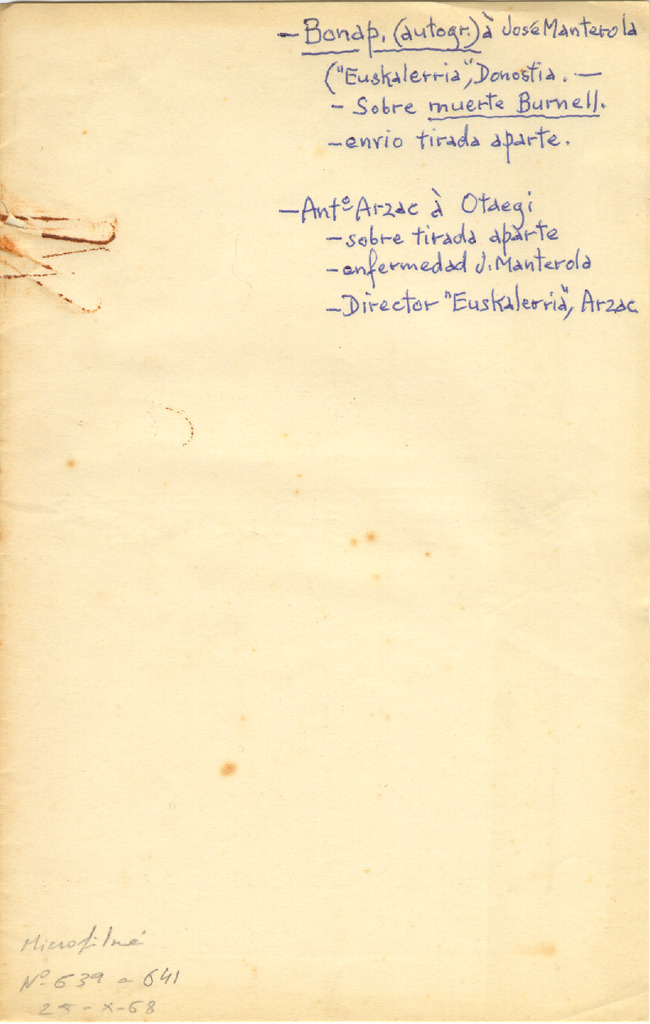 - Bonap. (autogr.) à José Manterola
("Euskalerria", Donostia. —
- Sobre muerte Burnell.
- envio tirada aparte.
- Antº Arzac à Otaegi
- sobre tirada aparte
- enfermedad J. Manterola
- Director "Euskalerria", Arzac
Microfilmé
Nº 639 a 641
X-68